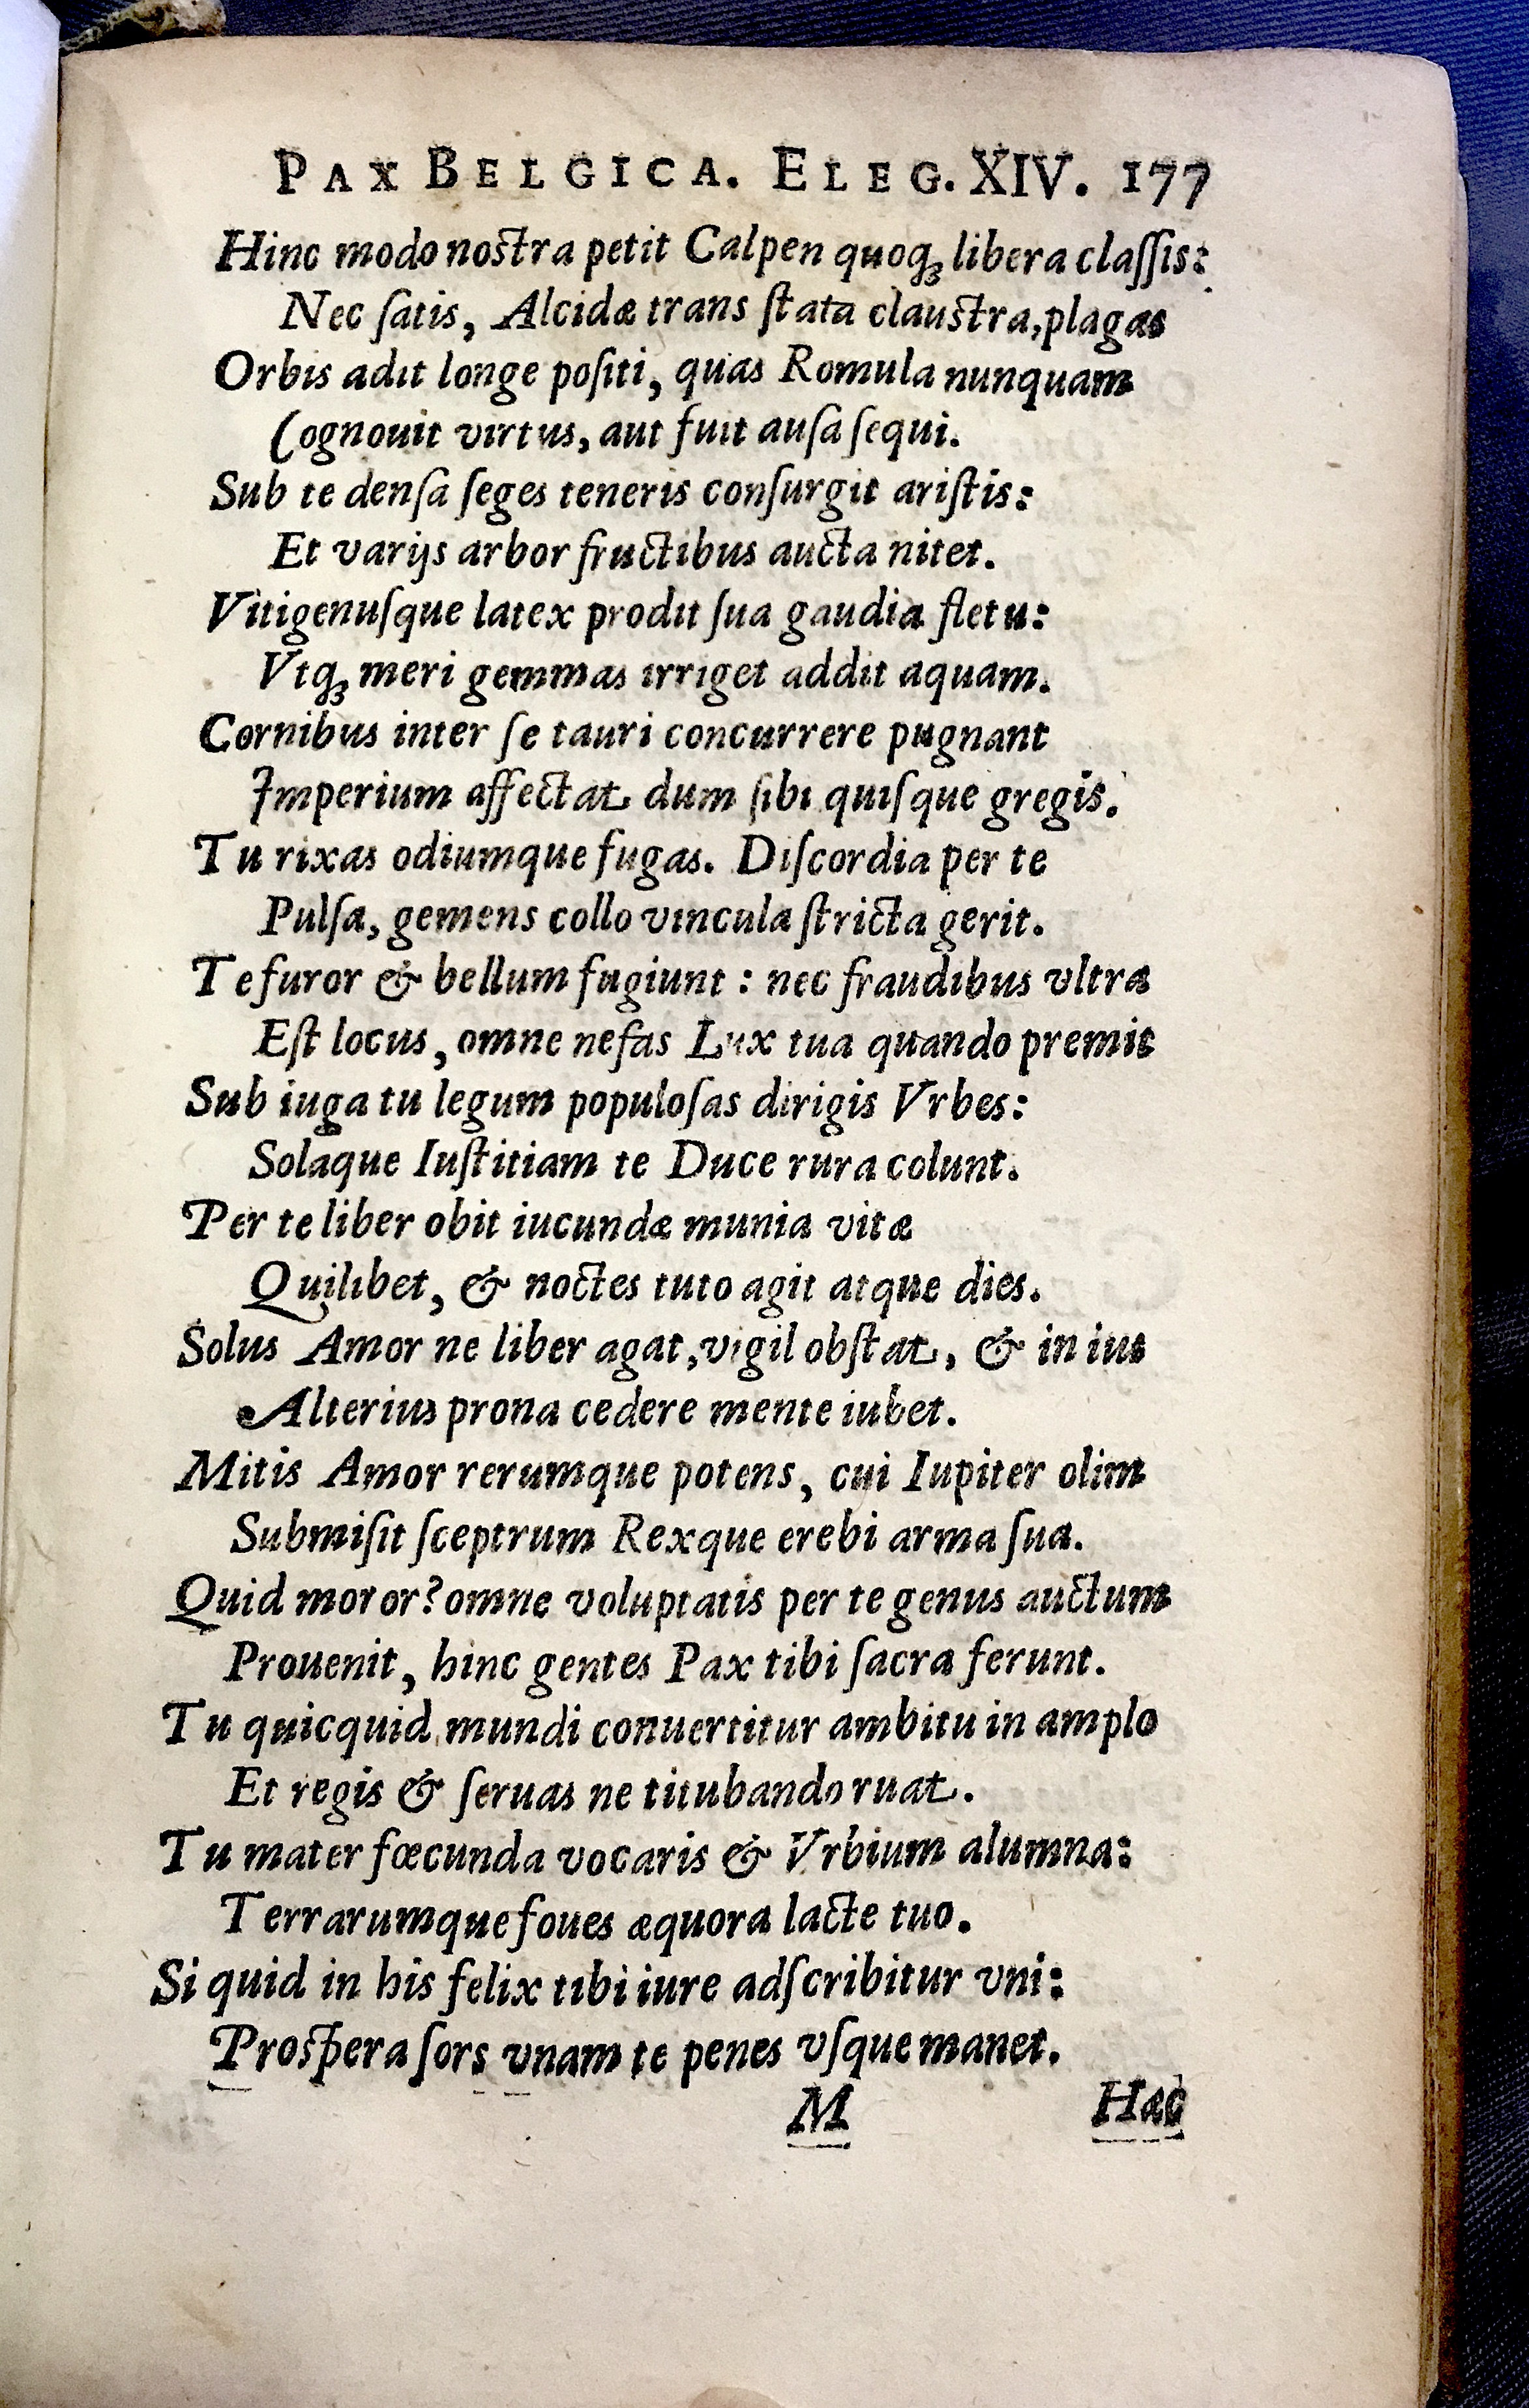 PAX BELGICA. ELEG. XIV. 177
Hinc modo nostra petit Calpen quoq; libera claſſis:
Nec ſatis, Alcidæ trans ſtata clauſtra, plagas
Orbis adit longe poſiti, quas Romula nunquam
Cognouit virtus, aut fuit auſa ſequi.
Sub te denſa ſeges teneris conſurgit ariſtis:
Et varijs arbor fructibus aucta nitet.
Vitigenuſque latex prodit ſua gaudia fletu:
Vtq; meri gemmas irriget addit aquam.
Cornibus inter ſe tauri concurrere pugnant
Imperium affectat dum ſibi quiſque gregis.
Tu rixas odiumque fugas. Diſcordia per te
Pulſa, gemens collo vincula ſtricta gerit.
Te furor & bellum fugiunt: nec fraudibus vltra
Eſt locus, omne nefas Lux tua quando premit
Sub iuga tu legum populoſas dirigis Vrbes:
Solaque Iuſtitiam te Duce rura colunt.
Per te liber obit iucundæ munia vitæ
Quilibet, & noctes tuto agit atque dies.
Solus Amor ne liber agat, vigil obſtat, & in ius
Alterius prona cedere mente iubet.
Mitis Amor rerumque potens, cui Iupiter olim
Submiſit ſceptrum Rexque erebi arma ſua.
Quid moror? omne voluptatis per te genus auctum
Prouenit, hinc gentes Pax tibi ſacra ferunt.
Tu quicquid mundi conuertitur ambitu in amplo
Et regis & ſeruas ne titubando ruat.
Tu mater fœcunda vocaris & Vrbium alumna:
Terrarumque foues æquora lacte tuo.
Si quid in his felix tibi iure adſcribitur vni:
Proſpera ſors vnam te penes vſque manet.
M Hæc